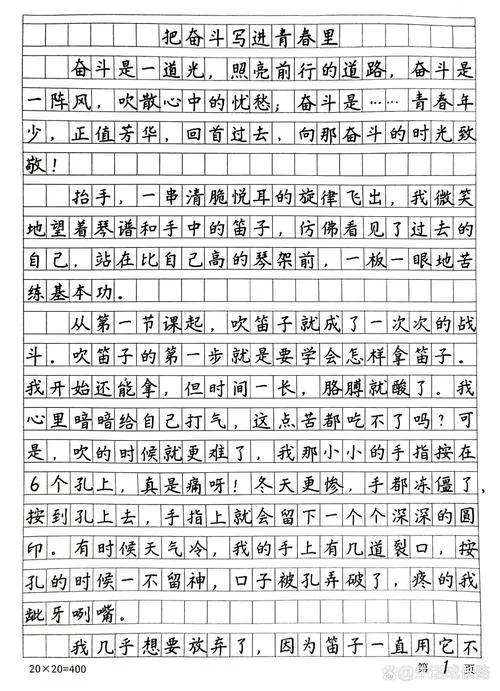 把奋斗写进青春里
奋斗是一道光，照亮前行的道路，奋斗是
一阵风，吹散心中的忧愁；奋斗是……青春年
少，正值芳华，回首过去，向那奋斗的时光致
敬！
抬手，一串清脆悦耳的旋律飞出，我微笑
地望着琴谱和手中的笛子，仿佛看见了过去的
自己，站在比自己高的琴架前，一板一眼地苦
练基本功。
从第一节课起，吹笛子就成了一次次的战
斗。吹笛子的第一步就是要学会怎样拿笛子。
我开始还能拿，但时间一长，胳膊就酸了。我
心里暗暗给自己打气，这点苦都吃不了吗？可
是，吹的时候就更难了，我那小小的手指按在
6个孔上，真是痛呀！冬天更惨，手都冻僵了，
按到孔上去，手指上就会留下一个个深深的圆
印。有时候天气冷，我的手上有几道裂口，按
孔的时候一不留神，口子被孔弄破了，疼的我
龇牙咧嘴。
我几乎想要放弃了，因为笛子一直用它不
20×20=400 第 1 页